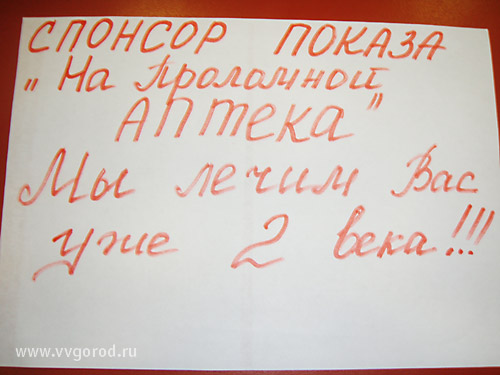 СПОНСОР ПОКАЗА
„На Проломной
АПТека"
Мы лечим Вас
уже 2 века!!!
www.vvgorod.ru